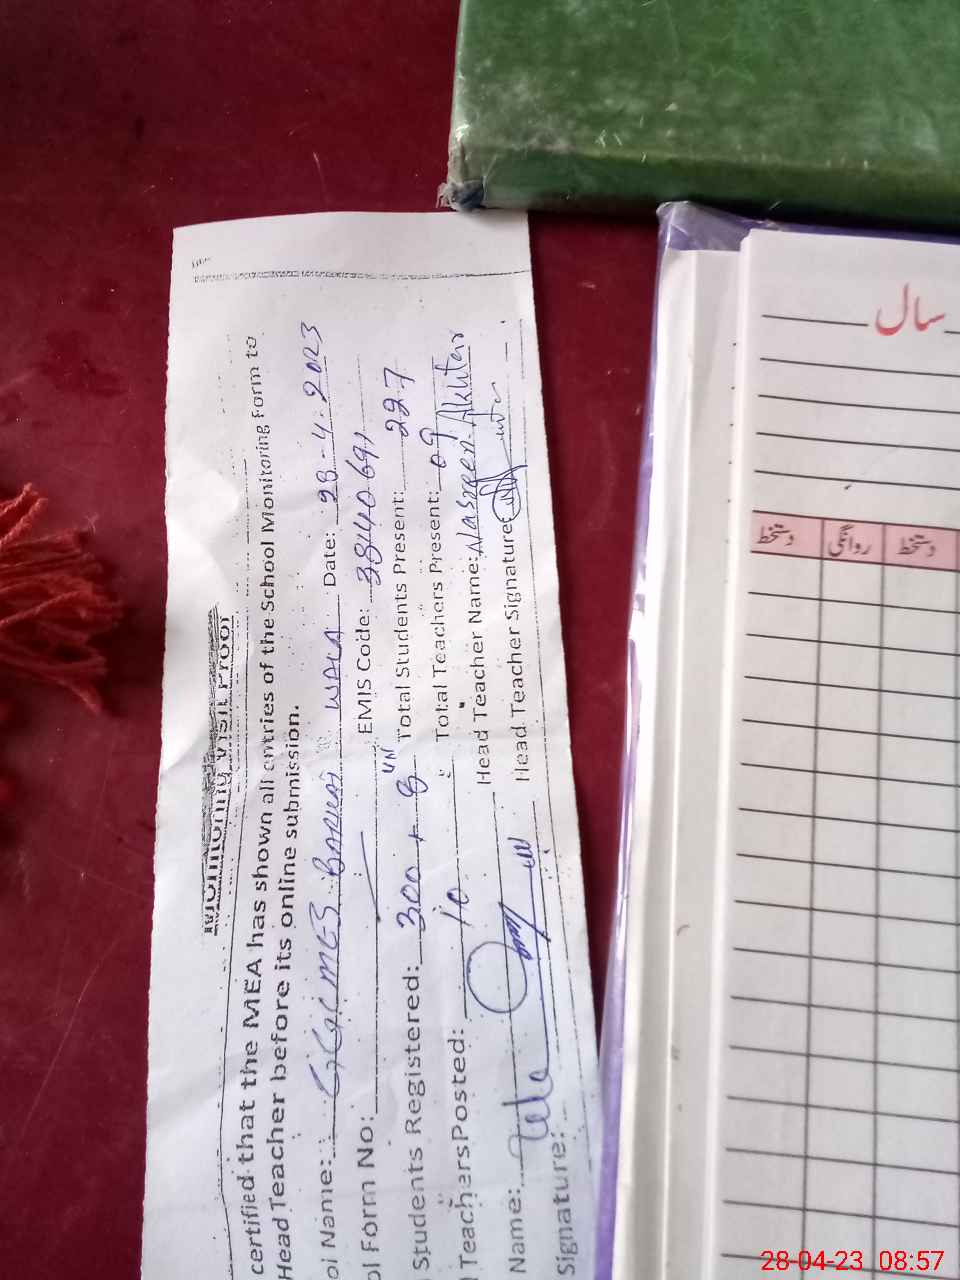 Monitoring Visit Proof
certified that the MEA has shown all entries of the School Monitoring Form to
Head Teacher before its online submission.
ol Name: GGCMES WALA Date: 28-4-2023
ol Form No: EMIS Code: 38440691
Students Registered: 300 + 8 Total Students Present: 227
Teachers Posted: 10 Total Teachers Present: 09
Name: Head Teacher Name: Nasreen Akhter
Signature: Head Teacher Signature:
سال
دستخط روانگی دستخط
28-04-23 08:57